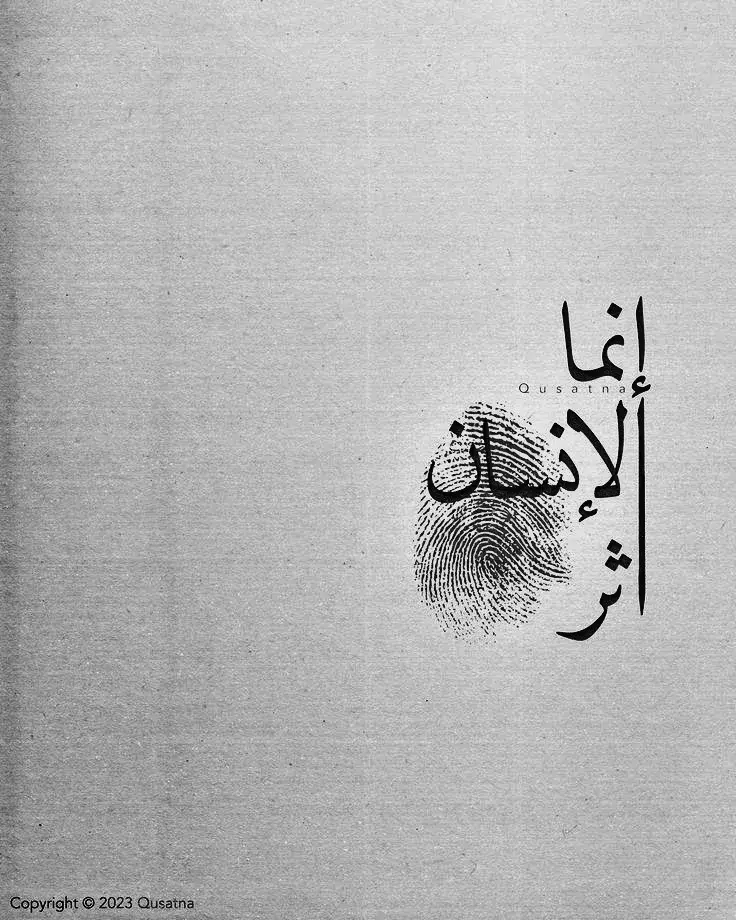 إنما
Qusatna
الإنسان
أثر
Copyright © 2023 Qusatna